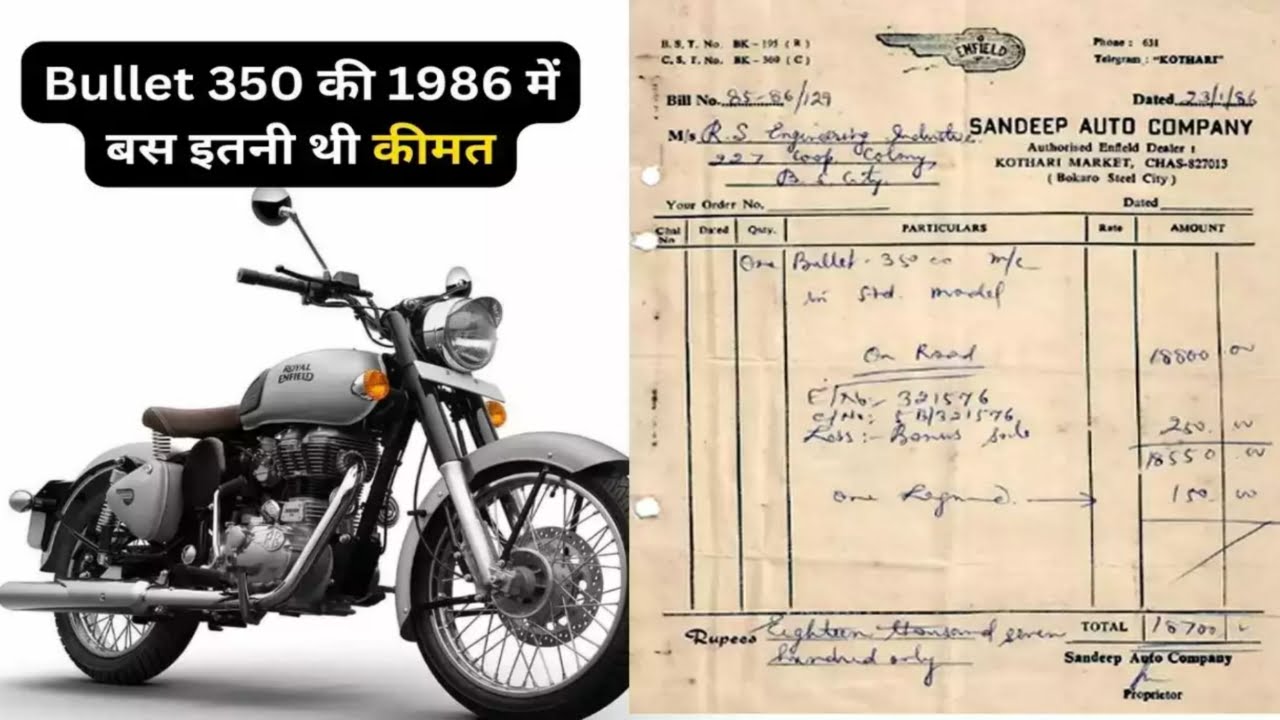 Bullet 350 की 1986 में
बस इतनी थी कीमत
ROYAL
ENFIELD
B. S. T. No. BK - 195 ( R )
C. S. T. No. BK - 360 ( C )
ENFIELD
Phone : 631
Telegram : "KOTHARI"
Bill No. 85-86/129
Dated 23/1/86
M/s R. S. Engineering
227 Coop. Colony,
B. S. City.
SANDEEP AUTO COMPANY
Authorised Enfield Dealer :
KOTHARI MARKET, CHAS-827013
( Bokaro Steel City )
Your Order No.
Dated
Chal No Dated Quty. PARTICULARS Rate AMOUNT
One Bullet - 350 cc m/c
in Std. model
On Road 18800.00
E/No:- 321576
C/No:- 5B/321576
Less :- Bonus 250.00
18550.00
One 150.00
Rupees Eighteen thousand seven
hundred only
TOTAL 18700
Sandeep Auto Company
Proprietor